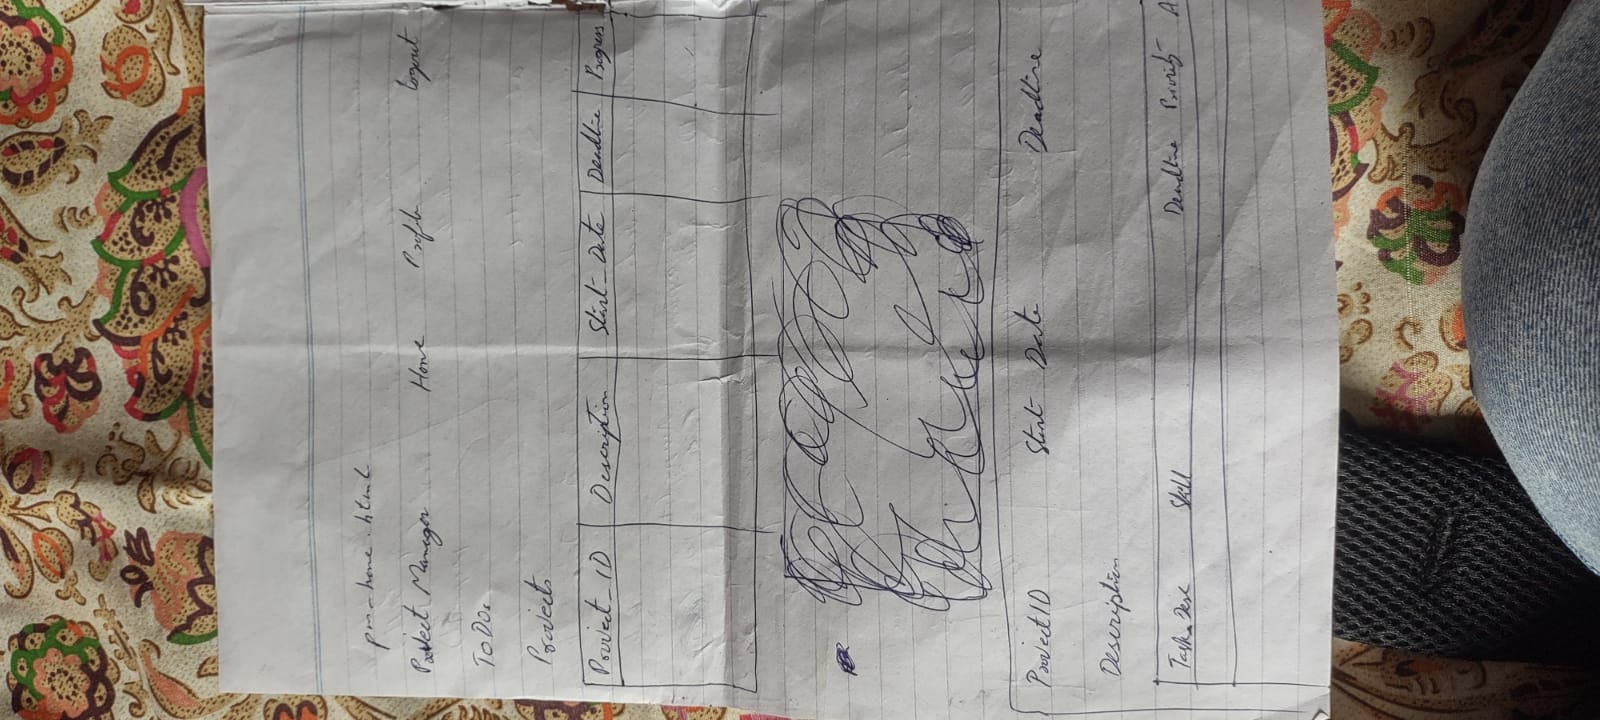 pm-home.html
Project Manager Home Profile Logout
ToDos
Projects
Project_ID Description Start_Date Deadline Progress
Project ID Start Date Deadline
Description
Task Desc Skill Deadline Priority A